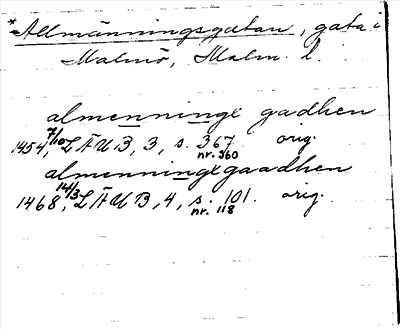 *Allmänningsgatan, gata i
Malmö, Malm. l.
almenninge gadhen
1454 7/10, LÄUB, 3, s. 367. orig.
nr. 360
almenningegaadhen
1468 14/3, LÄUB, 4, s. 101. orig.
nr. 118